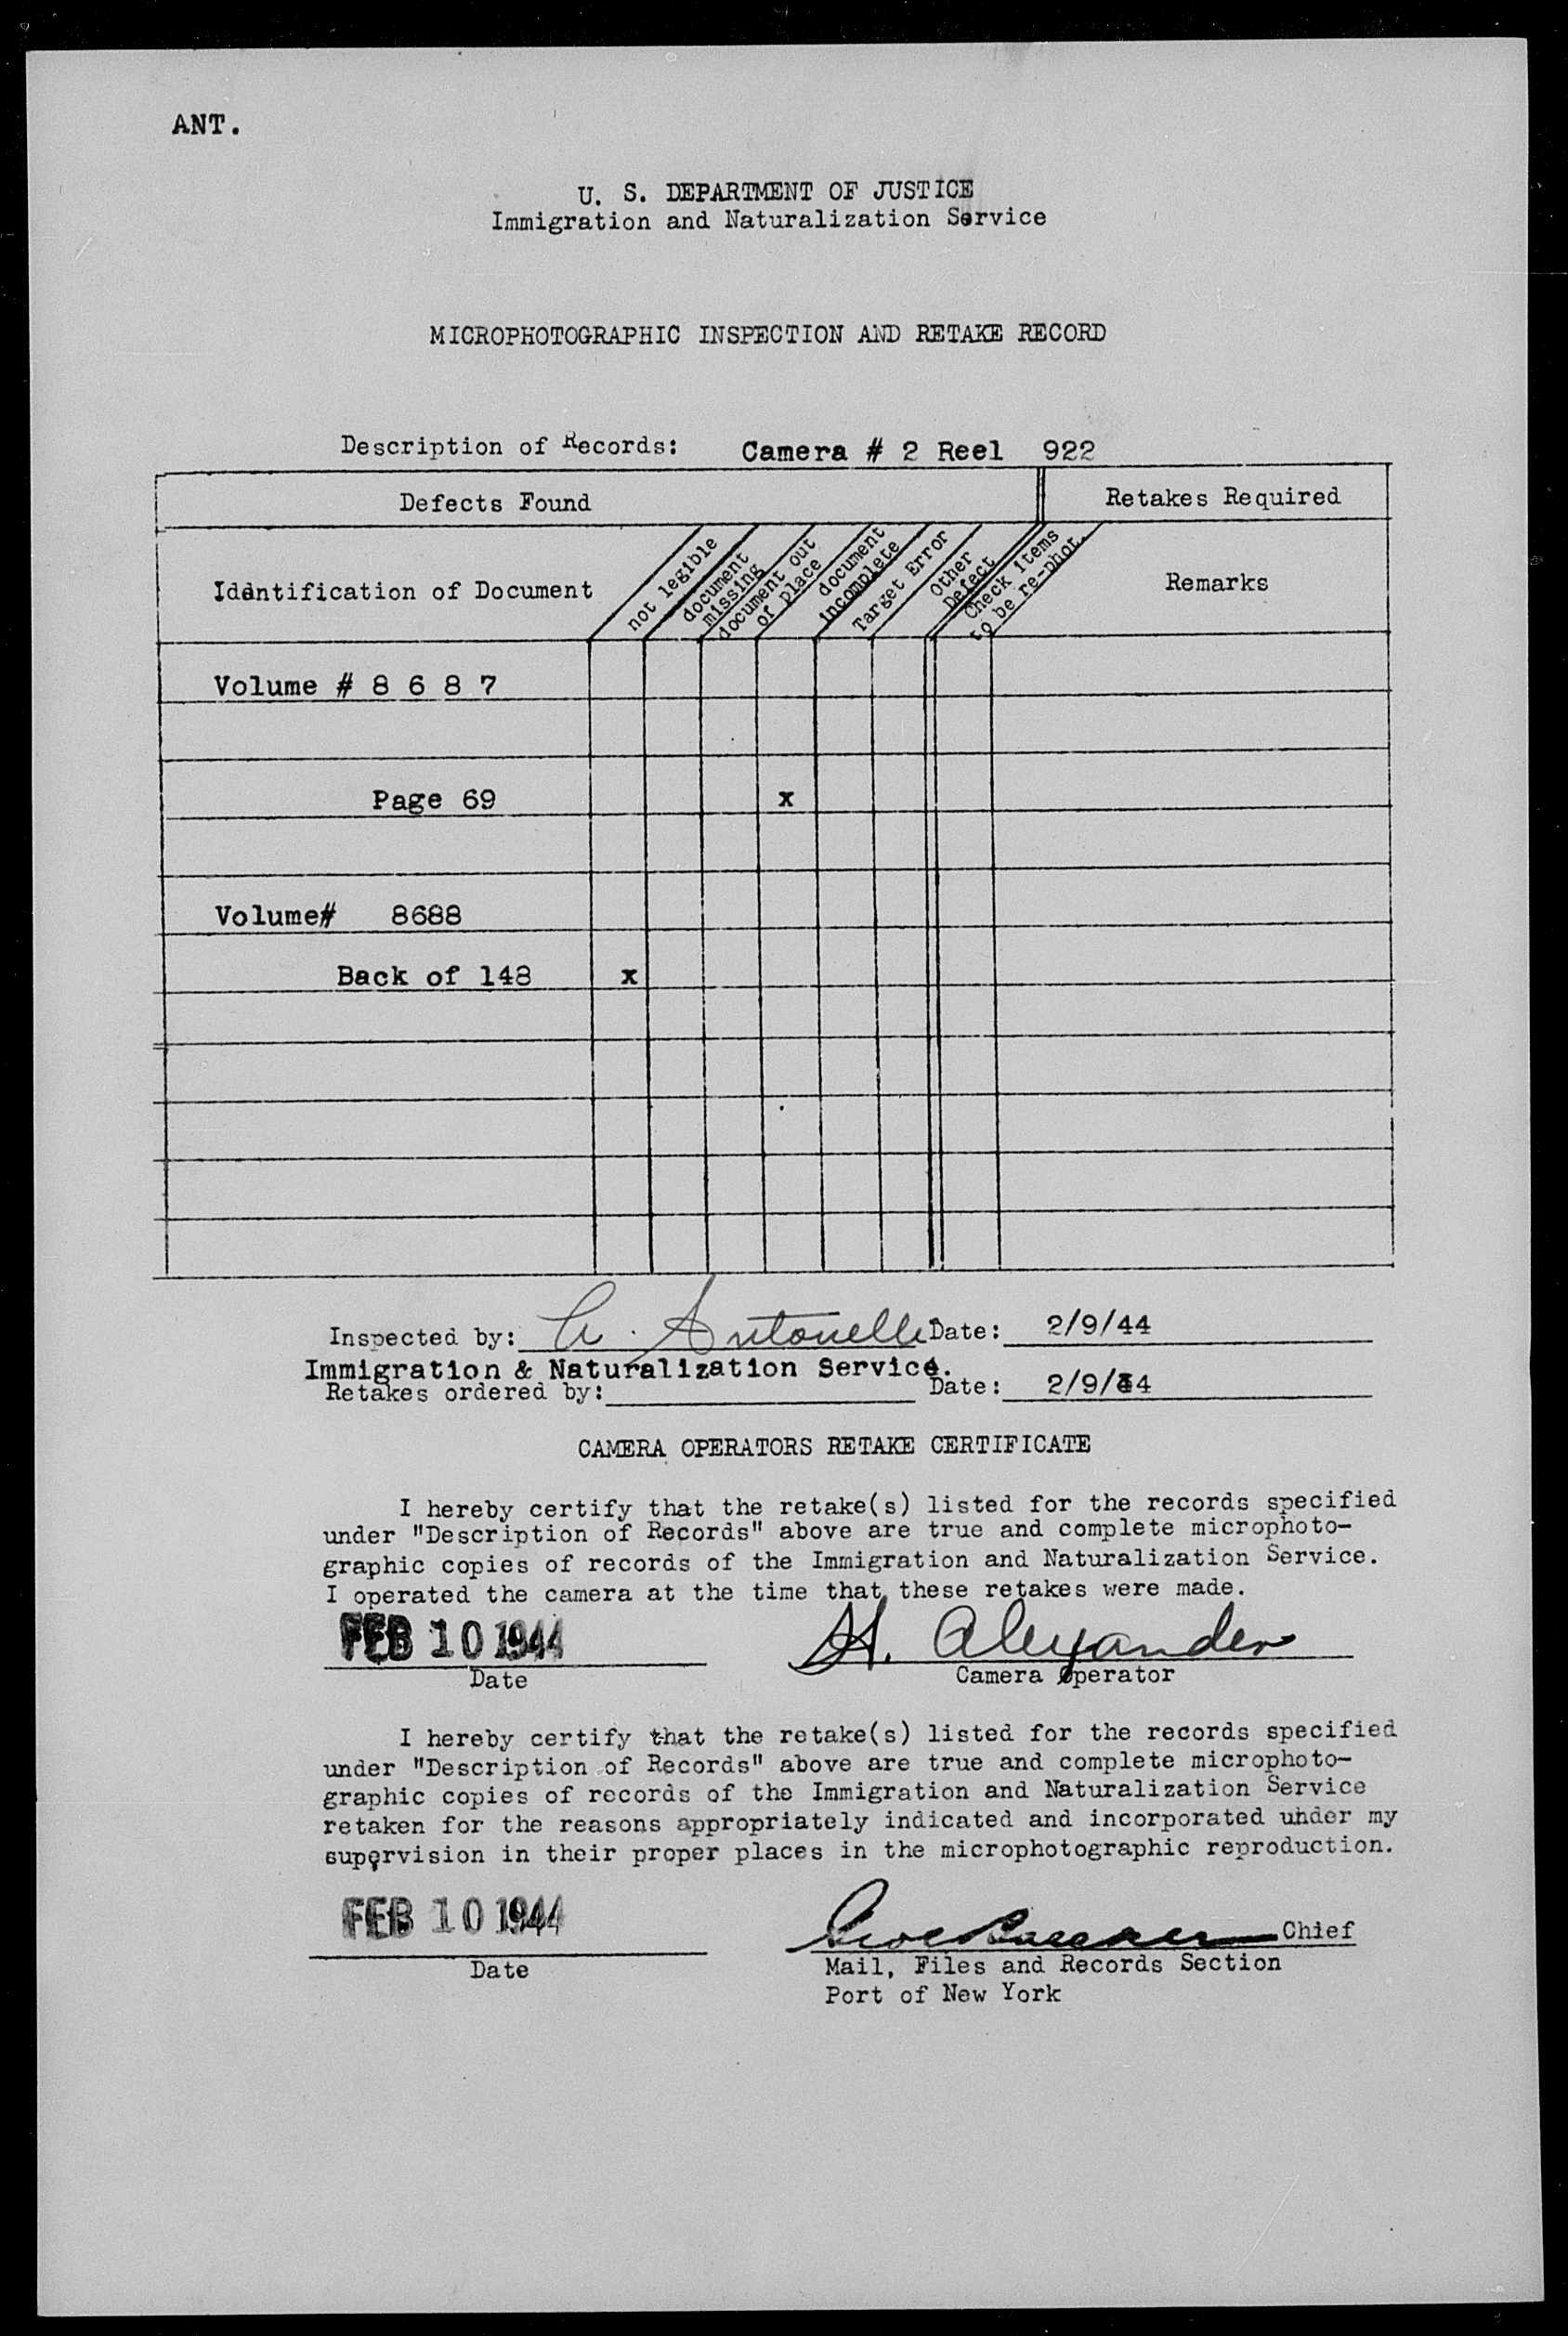 ANT.
U. S. DEPARTMENT OF JUSTICE
Immigration and Naturalization Service
MICROPHOTOGRAPHIC INSPECTION AND RETAKE RECORD
Description of Records: Camera # 2 Reel 922
Defects Found
Retakes Required
Identification of Document
not legible
document
missing
document out
of place
document
incomplete
Target Error
Other
Defect
Check items
to be re-phot.
Remarks
Volume # 8 6 8 7
Page 69 x
Volume# 8688
Back of 148 x
Inspected by: A. Antonelli Date: 2/9/44
Immigration & Naturalization Service.
Retakes ordered by: Date: 2/9/44
CAMERA OPERATORS RETAKE CERTIFICATE
I hereby certify that the retake(s) listed for the records specified
under "Description of Records" above are true and complete microphoto-
graphic copies of records of the Immigration and Naturalization Service.
I operated the camera at the time that these retakes were made.
FEB 10 1944 H. Alexander
Date Camera Operator
I hereby certify that the retake(s) listed for the records specified
under "Description of Records" above are true and complete microphoto-
graphic copies of records of the Immigration and Naturalization Service
retaken for the reasons appropriately indicated and incorporated under my
supervision in their proper places in the microphotographic reproduction.
FEB 10 1944 Chief
Date Mail, Files and Records Section
Port of New York